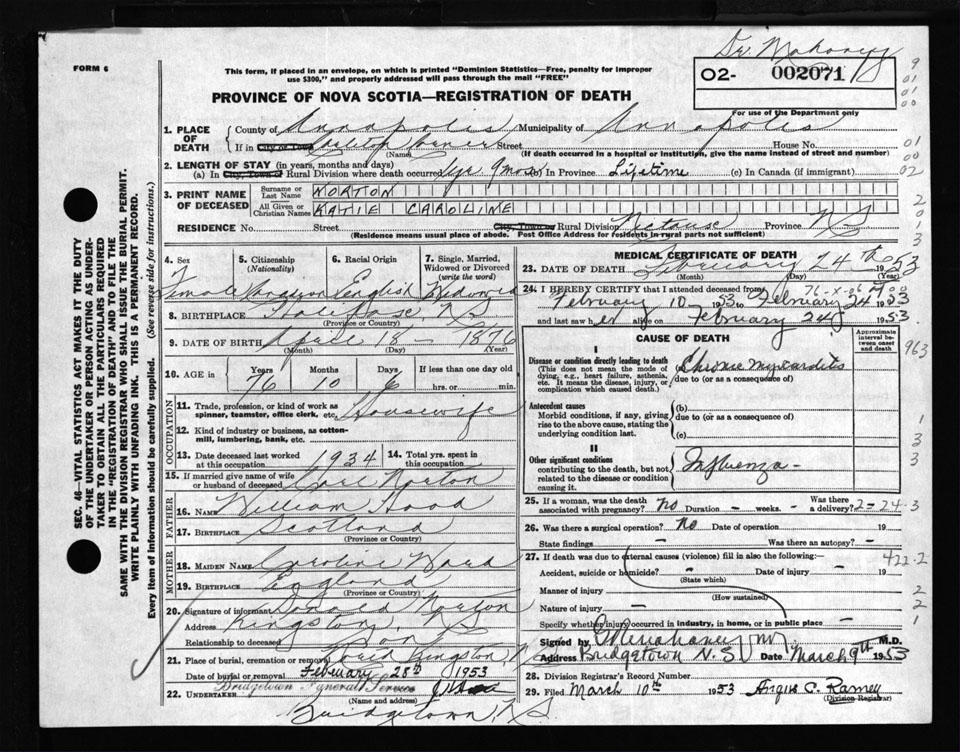 Dr. Mahoney
FORM 6
This form, if placed in an envelope, on which is printed "Dominion Statistics—Free, penalty for improper
use $300," and properly addressed will pass through the mail "FREE"
02- 002071
9
01
01
00
PROVINCE OF NOVA SCOTIA—REGISTRATION OF DEATH
For use of the Department only
1. PLACE OF DEATH
County of Annapolis Municipality of Annapolis
If in City or Town Corner Street House No.
(Name) (If death occurred in a hospital or institution, give the name instead of street and number)
01
00
02
2. LENGTH OF STAY (in years, months and days)
(a) In City, Town or Rural Division where death occurred 9 mos (b) In Province Lifetime (c) In Canada (if immigrant)
3. PRINT NAME OF DECEASED
Surname or Last Name NORTON
All Given or Christian Names KATIE CAROLINE
RESIDENCE No. Street City, Town or Rural Division Nictaux Province NS
(Residence means usual place of abode. Post Office Address for residents in rural parts not sufficient)
2
0
1
3
4. Sex Female
5. Citizenship (Nationality) Canadian
6. Racial Origin English
7. Single, Married, Widowed or Divorced (write the word) Widowed
8. BIRTHPLACE N.S.
(Province or Country)
9. DATE OF BIRTH April 18 - 1876
(Month) (Day) (Year)
10. AGE in Years 76 Months 10 Days 6 If less than one day old
hrs. or min.
OCCUPATION
11. Trade, profession, or kind of work as
spinner, teamster, office clerk, etc. Housewife
12. Kind of industry or business, as cotton-
mill, lumbering, bank, etc.
13. Date deceased last worked
at this occupation 1934
14. Total yrs. spent in
this occupation
15. If married give name of wife
or husband of deceased Norton
FATHER
16. NAME William Hood
17. BIRTHPLACE Scotland
(Province or Country)
MOTHER
18. MAIDEN NAME Caroline Ward
19. BIRTHPLACE England
(Province or Country)
20. Signature of informant Donald Norton
Address Kingston, NS
Relationship to deceased Son
21. Place of burial, cremation or removal Kingston
Date of burial or removal February 28th 1953
22. UNDERTAKER Bridgetown Funeral Service
(Name and address)
Bridgetown, N.S.
MEDICAL CERTIFICATE OF DEATH
23. DATE OF DEATH February 24th 1953
(Month) (Day) (Year)
76-X-06
24. I HEREBY CERTIFY that I attended deceased from
February 10 1953 to February 24 1953
and last saw her alive on February 24 1953
CAUSE OF DEATH
Approximate interval between onset and death
963
I
Disease or condition directly leading to death
(This does not mean the mode of
dying, e.g., heart failure, asthenia,
etc. It means the disease, injury, or
complication which caused death.)
Chronic Myocarditis
due to (or as a consequence of)
Antecedent causes
Morbid conditions, if any, giving
rise to the above cause, stating the
underlying condition last.
(b)
due to (or as a consequence of)
(c)
1
3
3
II
Other significant conditions
contributing to the death, but not
related to the disease or condition
causing it.
Influenza -
25. If a woman, was the death
associated with pregnancy? No Duration - weeks. - Was there
a delivery? 2-24-3
26. Was there a surgical operation? No Date of operation 19
State findings - Was there an autopsy? -
27. If death was due to external causes (violence) fill in also the following:-
422-2
Accident, suicide or homicide? - Date of injury - 19
(State which)
Manner of injury
(How sustained)
Nature of injury -
Specify whether injury occurred in industry, in home, or in public place -
2
2
1
Signed by M.D.
Address Bridgetown N.S. Date March 9th 1953
28. Division Registrar's Record Number
29. Filed March 10th 1953 Angus C. Ramey
(Division Registrar)
SEC. 46—VITAL STATISTICS ACT MAKES IT THE DUTY
OF THE UNDERTAKER OR PERSON ACTING AS UNDER-
TAKER TO OBTAIN ALL THE PARTICULARS REQUIRED
IN THE "REGISTRATION OF DEATH" AND TO FILE THE
SAME WITH THE DIVISION REGISTRAR WHO SHALL ISSUE THE BURIAL PERMIT.
WRITE PLAINLY WITH UNFADING INK. THIS IS A PERMANENT RECORD.
Every item of information should be carefully supplied. (See reverse side for instructions.)